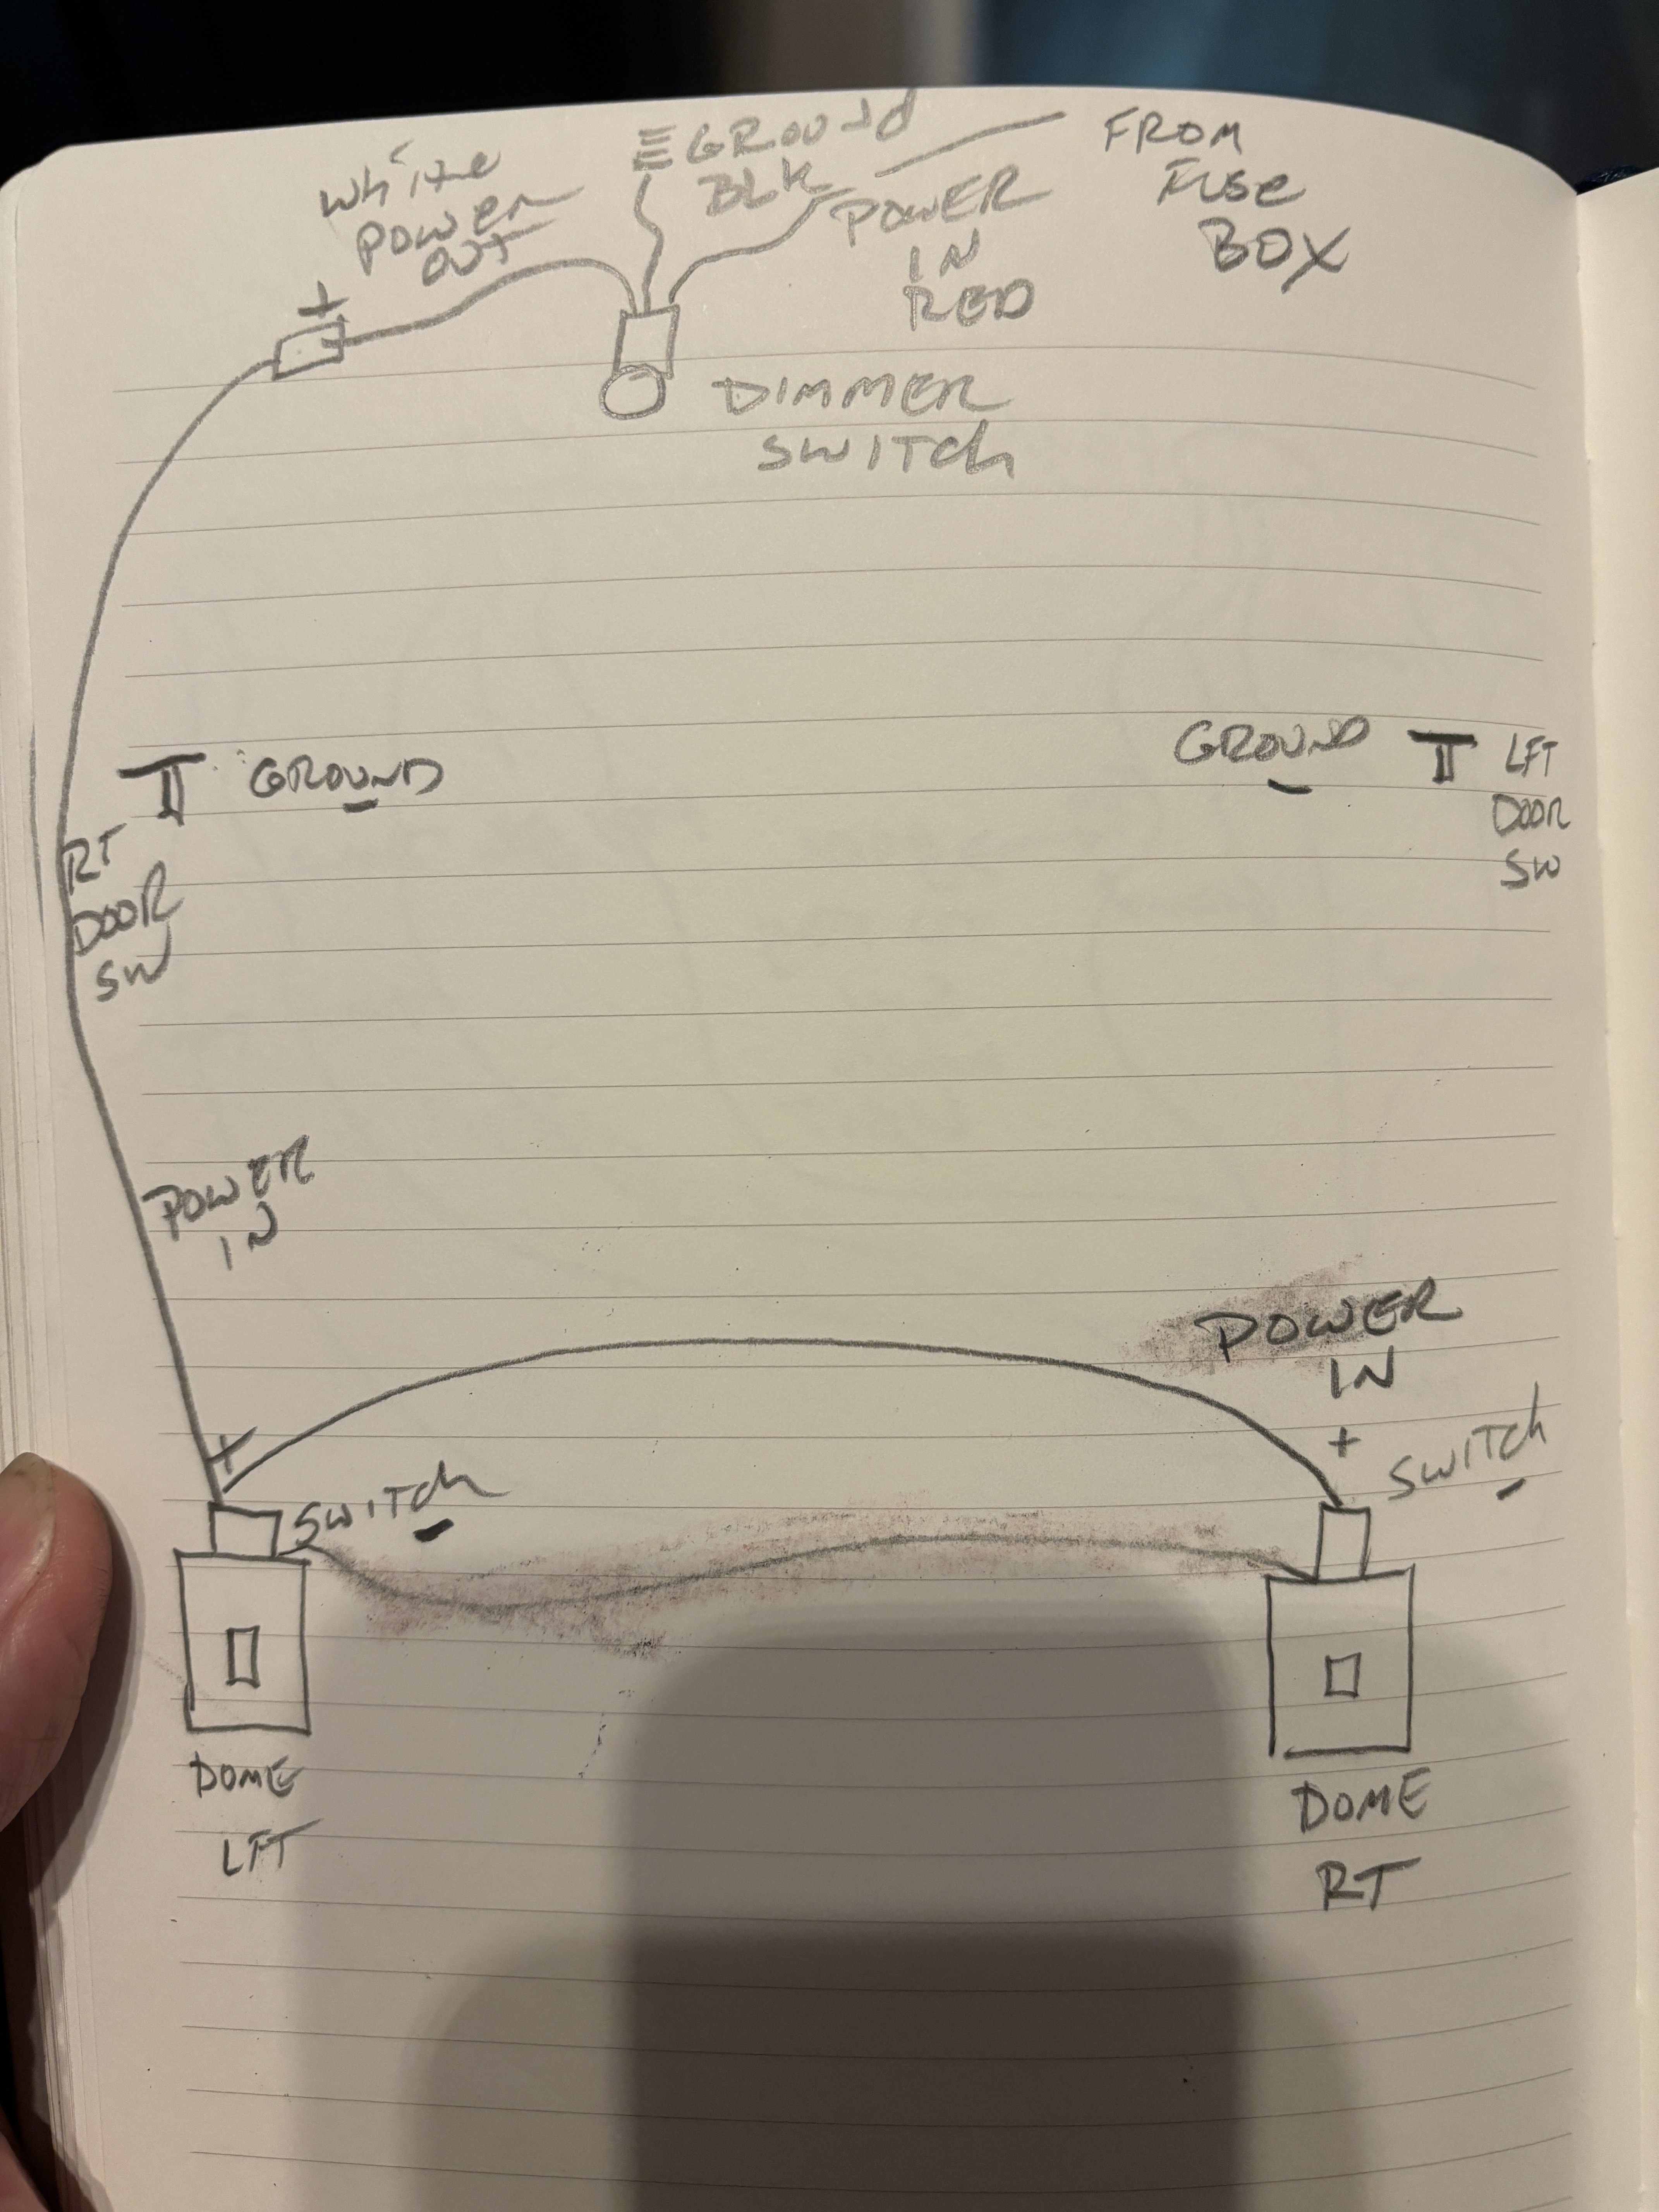 White
POWER
OUT
+
GROUNd
BLK
POWER
IN
RED
FROM
FUSE
BOX
DIMMER
SWITCh
GROUND
-
RT
DOOR
SW
GROUND
-
LFT
DOOR
SW
POWER
IN
POWER
IN
+
+
SWITCh
-
SWITCh
-
DOME
LFT
DOME
RT